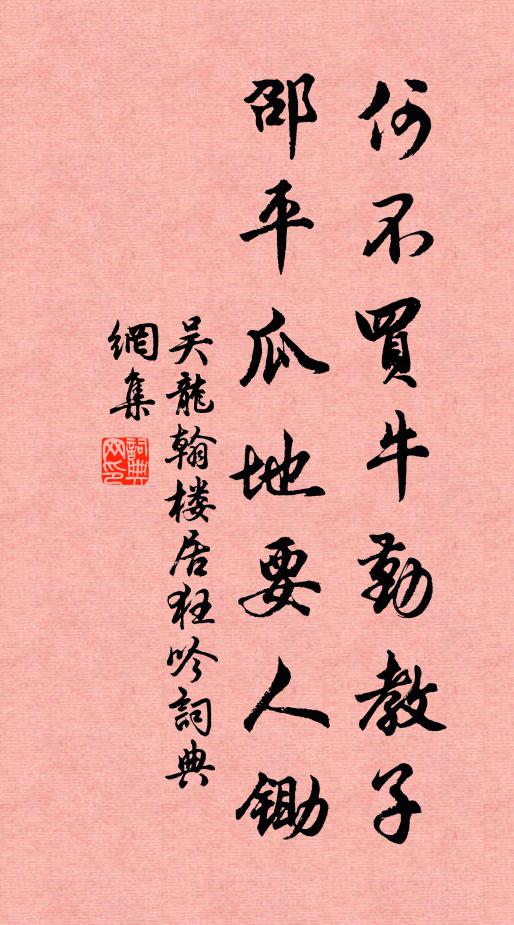 何不買牛勤教子
邵平瓜地要人鋤
吴龍翰楼居狂吟詞典
網集
詞典
网印